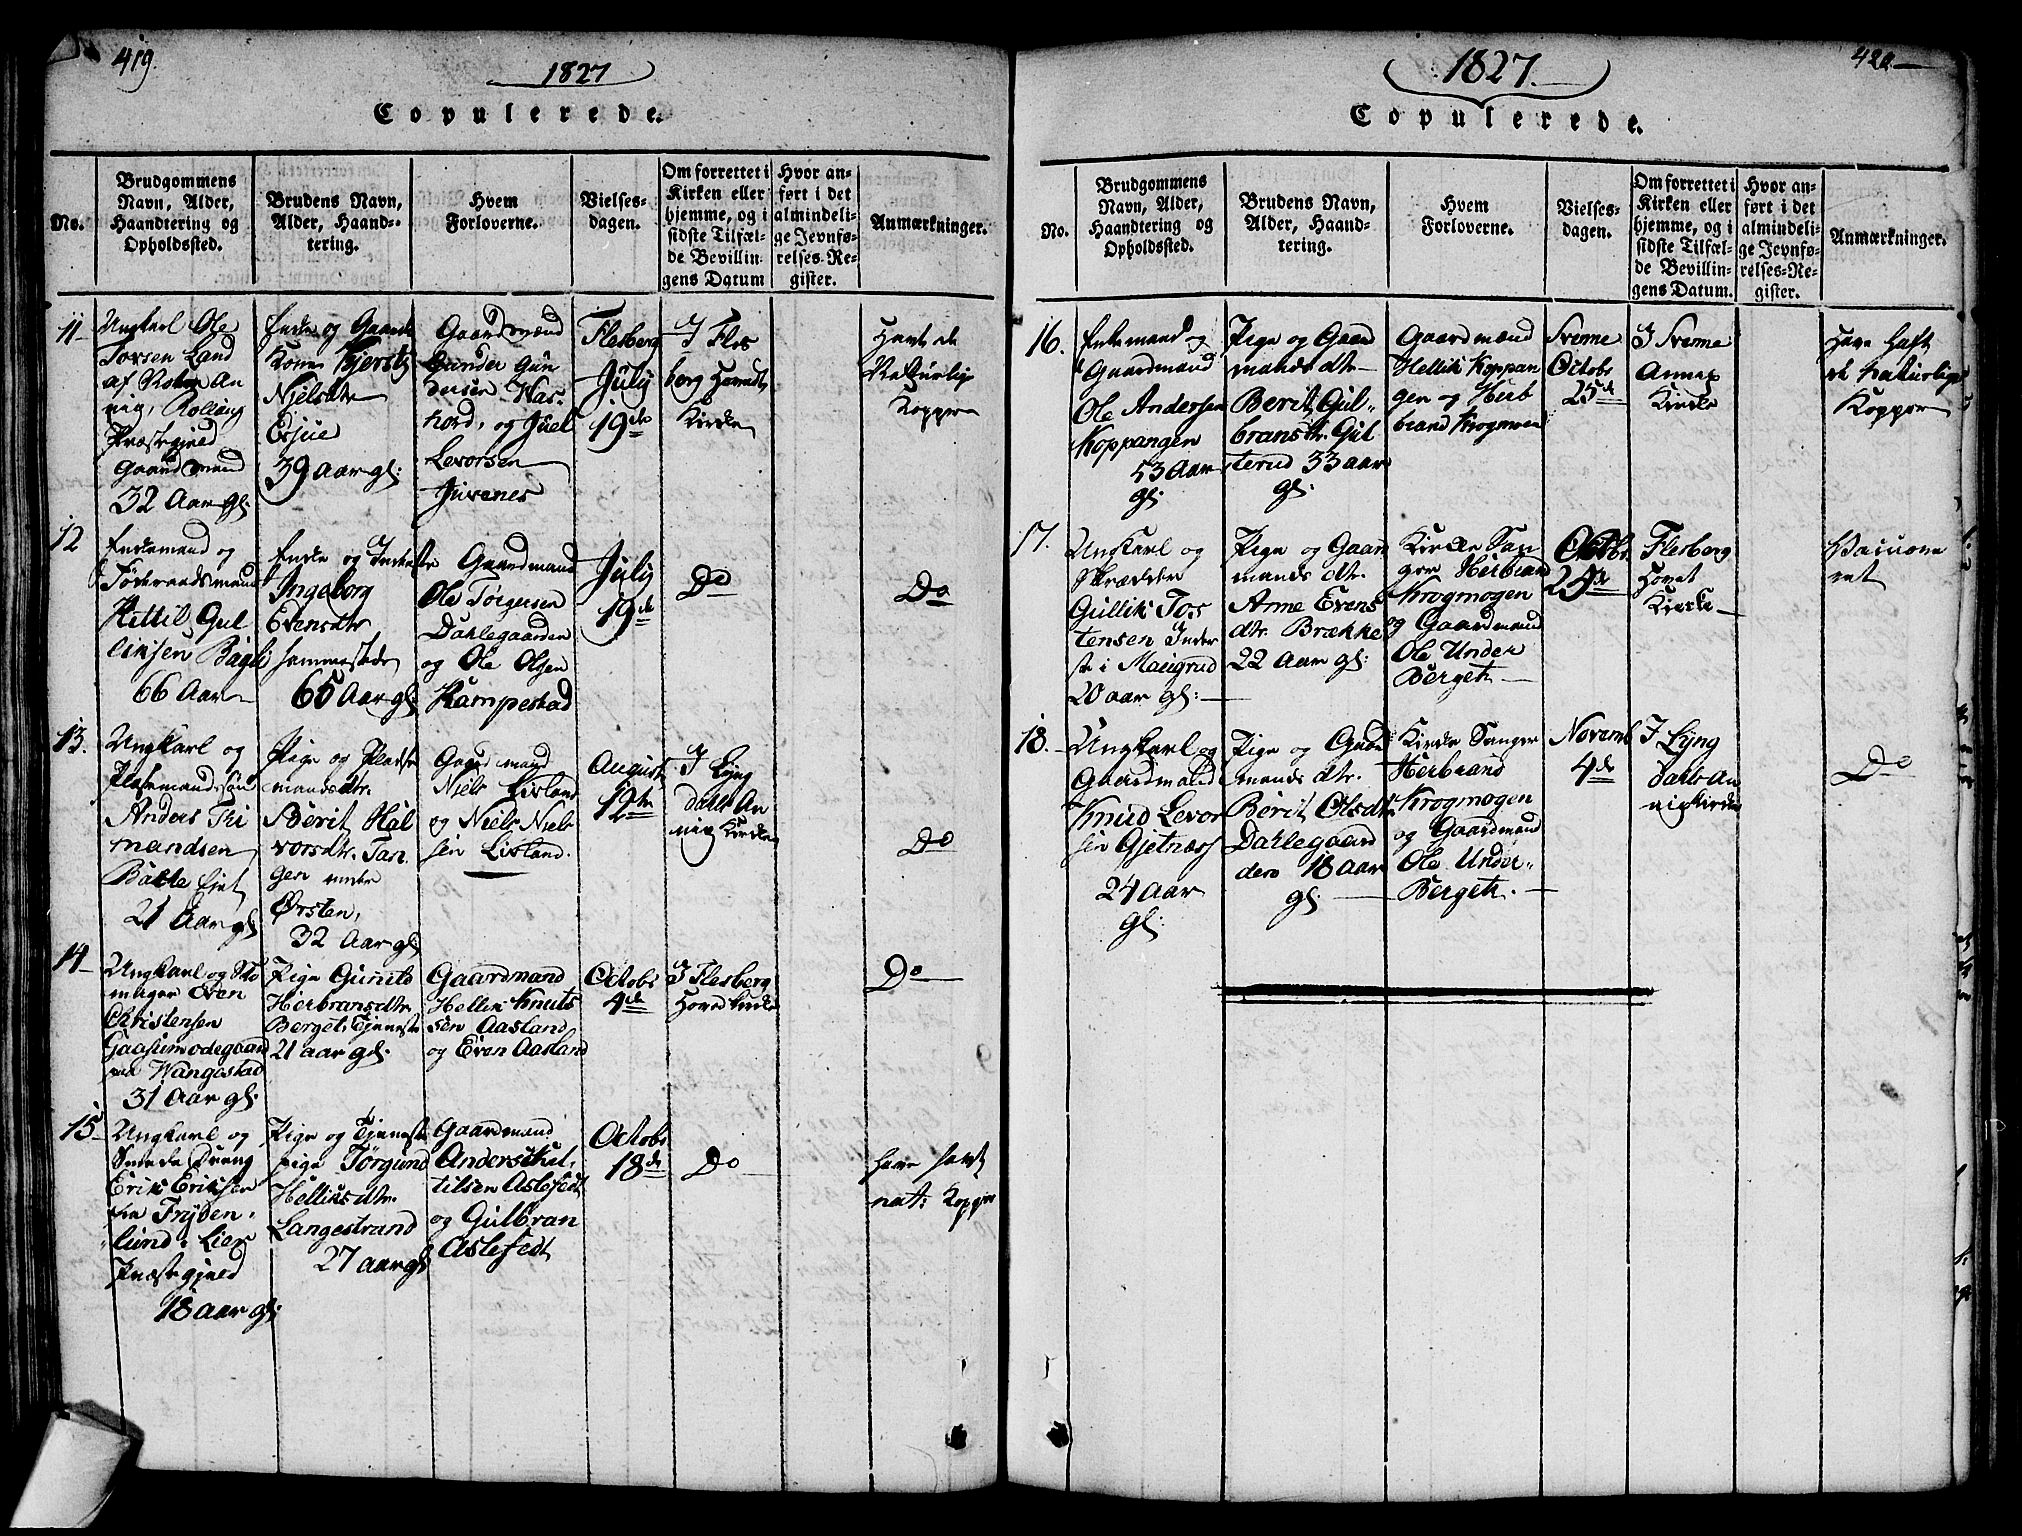 419.
1827
Copulerede.
No.
Brudgommens
Navn, Alder,
Haandtering og
Opholdssted.
Brudens Navn,
Alder, Haand-
tering.
Hvem
Forloverne.
Vielses-
dagen.
Om forrettet i
Kirken eller
hjemme, og i
sidste Tilfæl-
de Bevillin-
gens Datum
Hvor an-
ført i det
almindeli-
ge Jevnfø-
relses-Re-
gister.
Anmærkninger.
11
Ungkarl Ole
Torsen Land
Rolloug
Præstegjeld
Gaardmand
32 Aar gl:
Enke og Gaard
Kone Kjersti
Nielsdtr
39 Aar gl:
Gaardmænd
Gunder Gun
dersen Was-
hord, og Juel
Levorsen
Juvenes
Flesberg
July
19de
I Fles
berg Hoved
Kirke
Havde de
Naturlige
Kopper
12
Enkemand og
Föderaadsmand
Kittil Gul
liksen Bagli
66 Aar
Enke og
Ingeborg
Evensdtr
sammestede
65 Aar gl
Gaardmænd
Ole Törgersen
Dahlegaarden
og Ole Olsen
Kampestad
July
19de
Do
Do
13.
Ungkarl og
Pladsemandssön
Anders Tri
mandsen
Bakke Ejet
21 Aar gl
Pige og Pladse
mandsdtr.
Berit Hal
vorsdtr. Tan
gen under
Örsten,
32 Aar gl;
Gaardmænd
Niels Lisland
og Niels Niel
sen Lisland.
August
12te
I Lyng
dahls An
nex Kirke
Do
14
Ungkarl og Sko
mager Even
Christensen
Gaasumodegaard
paa Wangestad
31 Aar gl:
Pige Gunild
Herbransdtr
Berget, Tjeneste
21 aar gl:
Gaardmænd
Hellik Knuts
sen Aasland
og Even Aasland
Octobr
4de
I Flesberg
Hoved Kirke
Do
15
Ungkarl og
Smede Dreng
Erik Eriksen
paa Fryden-
lund i Lier
Præstegjeld
18 aar gl;
Pige og Tjeneste
pige Jörgund
Helliksdtr.
Langestrand
27 aar gl
Gaardmænd
Anders Kit-
tilsen Aslefedt
og Gulbran
Aslefedt
Octobr
18de
Do
have havt
nat: Kopper
420
1827.
Copulerede.
No.
Brudgommens
Navn, Alder,
Haandtering og
Opholdssted.
Brudens Navn,
Alder, Haand-
tering.
Hvem
Forloverne.
Vielses-
dagen.
Om forrettet i
Kirken eller
hjemme, og i
sidste Tilfæl-
de Bevillin-
gens Datum.
Hvor an-
ført i det
almindeli-
ge Jevnfø-
relses-Re-
gister.
Anmærkninger.
16.
Enkemand og
Gaardmand
Ole Andersen
Koppangen
53 Aar
gl:
Pige og Gaard
mandsdtr
Berit Gul-
bransdtr. Gul
sterud 33 aar
gl:
Gaardmænd
Hellik Koppan
gen og Herb
brand Krogmoen
Svenne
Octobr
25de
I Svenne
Annex
Kirke
Have haft
de naturlige
Kopper
17.
Ungkarl og
Skrædder
Gullik Tos
tensen Inder
st i Maugrud
20 aar gl:
Pige og Gaard
mands dtr.
Anne Evens
dtr. Brække
22 Aar gl:
Kirke San
ger Herbrand
Krogmogen
og Gaardmand
Ole Under
Berget
Octobr
25de
Flesberg
Hovet
Kirke
Vaccine
ret
18.
Ungkarl og
Gaardmand
Knud Levor
sen Gjetness
24 Aar
gl:
Pige og Gaard
mands dtr.
Berit Olsdtr
Dahlegaard
den 18 aar
gl:
Kirke Sanger
Herbrand
Krogmogen
og Gaardmand
Ole Under-
Berget.
Novemb
4de
I Lyng
dahls An
nex Kirke
Do